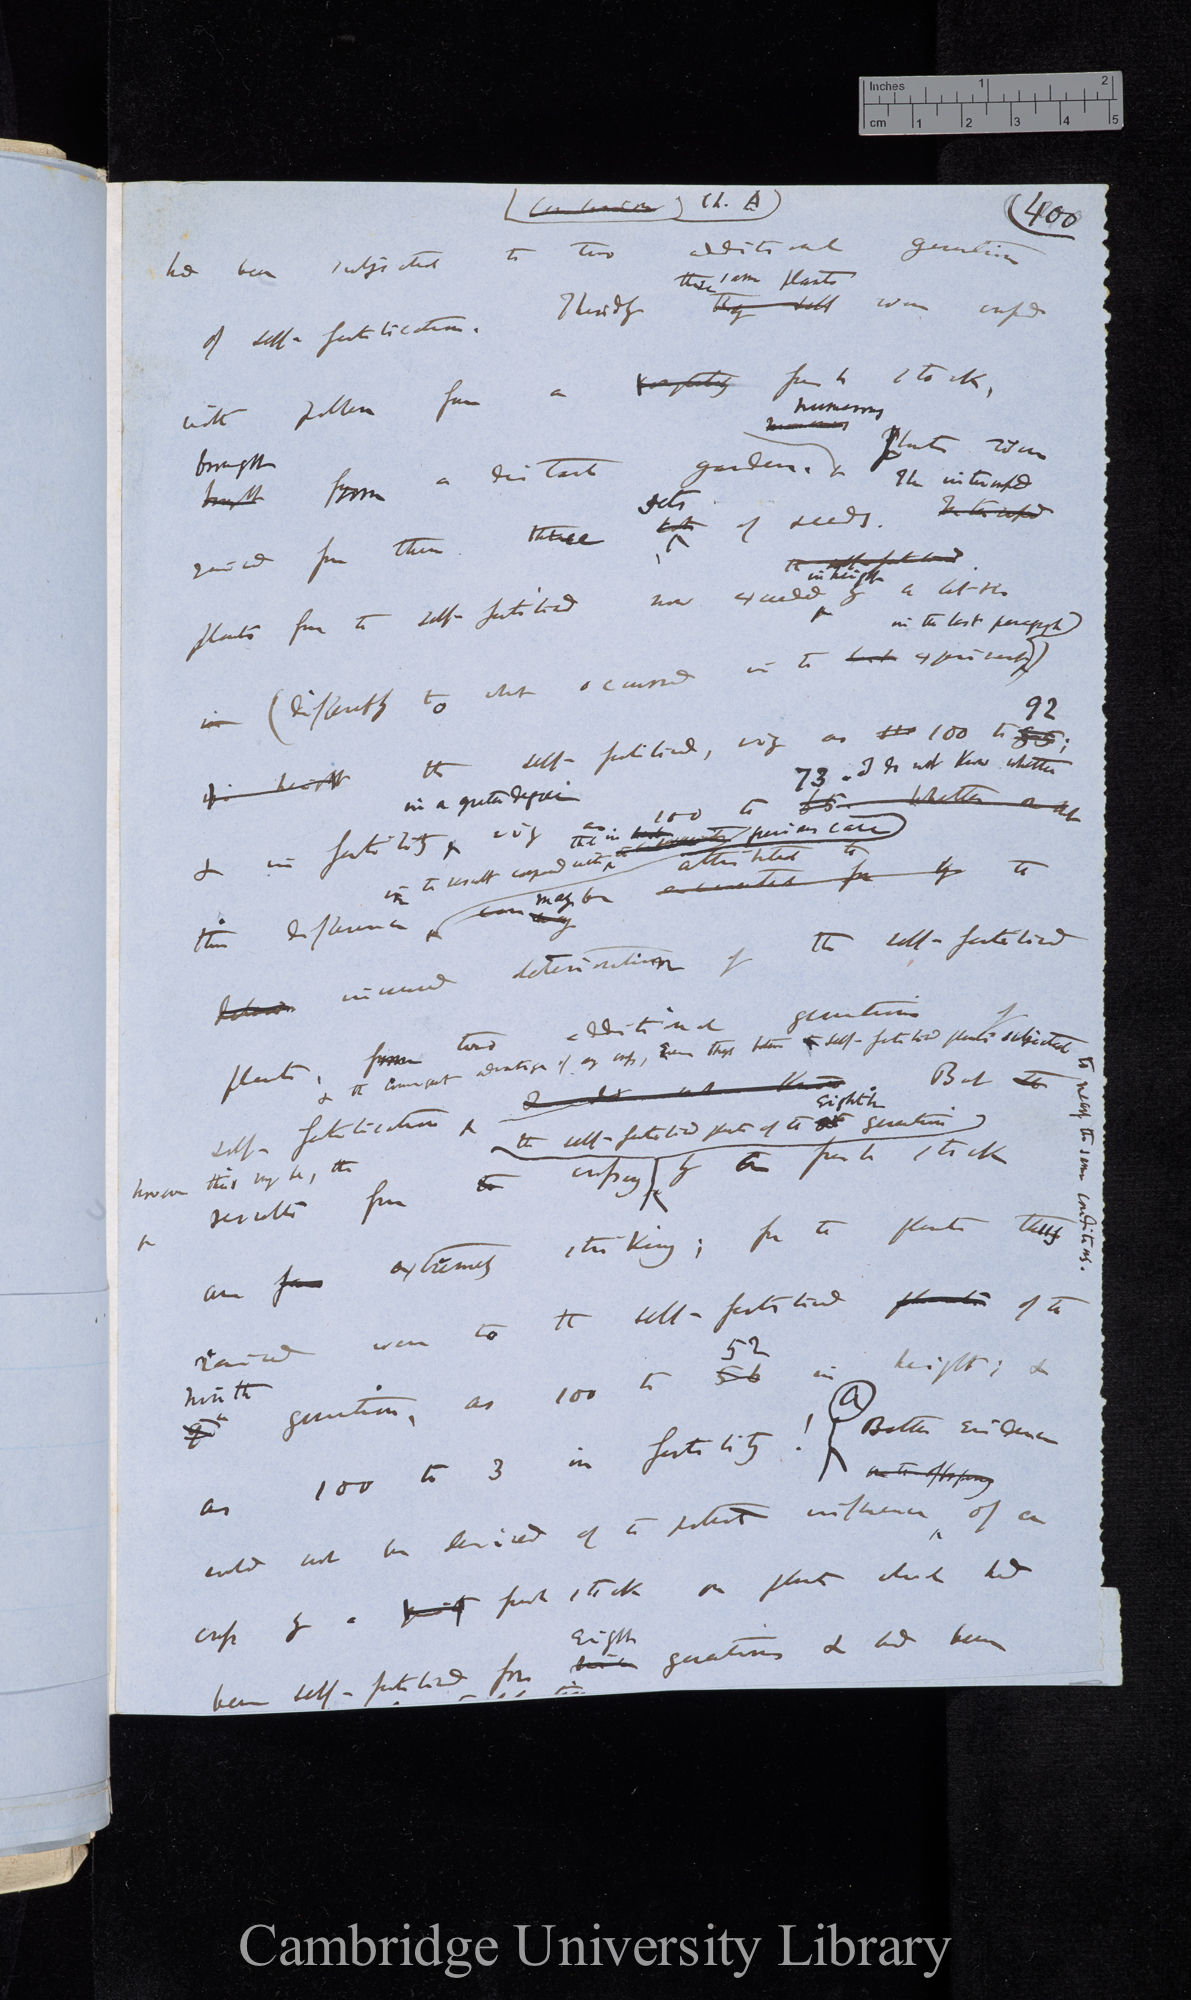 Inches 1 2
cm 1 2 3 4 5
Ch. A
400
had been subjected to two additional generations
these same plants
of self-fertilisation. Thirdly they self were crossed
with pollen from a fresh stock,
numerous
brought plants were
bought from a distant garden. &
sets The intercrossed
raised from them three of seeds.
in height
plants from the self-fertilised now exceeded by a
in the last paragraph)
in (differently to what occurred in the last experiment)
92
in height the self-fertilised, viz as 100 to 55;
in a greater degree 73. I do not know whether
& in fertility, viz as 100 to 65. Whether or not
in the result compared with that in the previous case
may be attributed to
this difference can accounted for by the
increased deterioration of the self-fertilised
plants, from two additional generations of
& the consequent advantage of any cross, even though between self-fertilised plants subjected
to nearly the same conditions.
self-fertilisation I do not know But the
eighth
the self-fertilised plants of the generation
however this may be, the
results from the crossing by a fresh stock
are extremely striking; for the plants thus
raised were to the self-fertilised plants of the
52
ninth
9th generation, as 100 to 56 in height; &
(a)
as 100 to 3 in fertility! Better evidence
on the offspring
could not be desired of the potent influence of a
cross by a fresh stock on plants which had
eight
been self-fertilised for generations & had been
Cambridge University Library